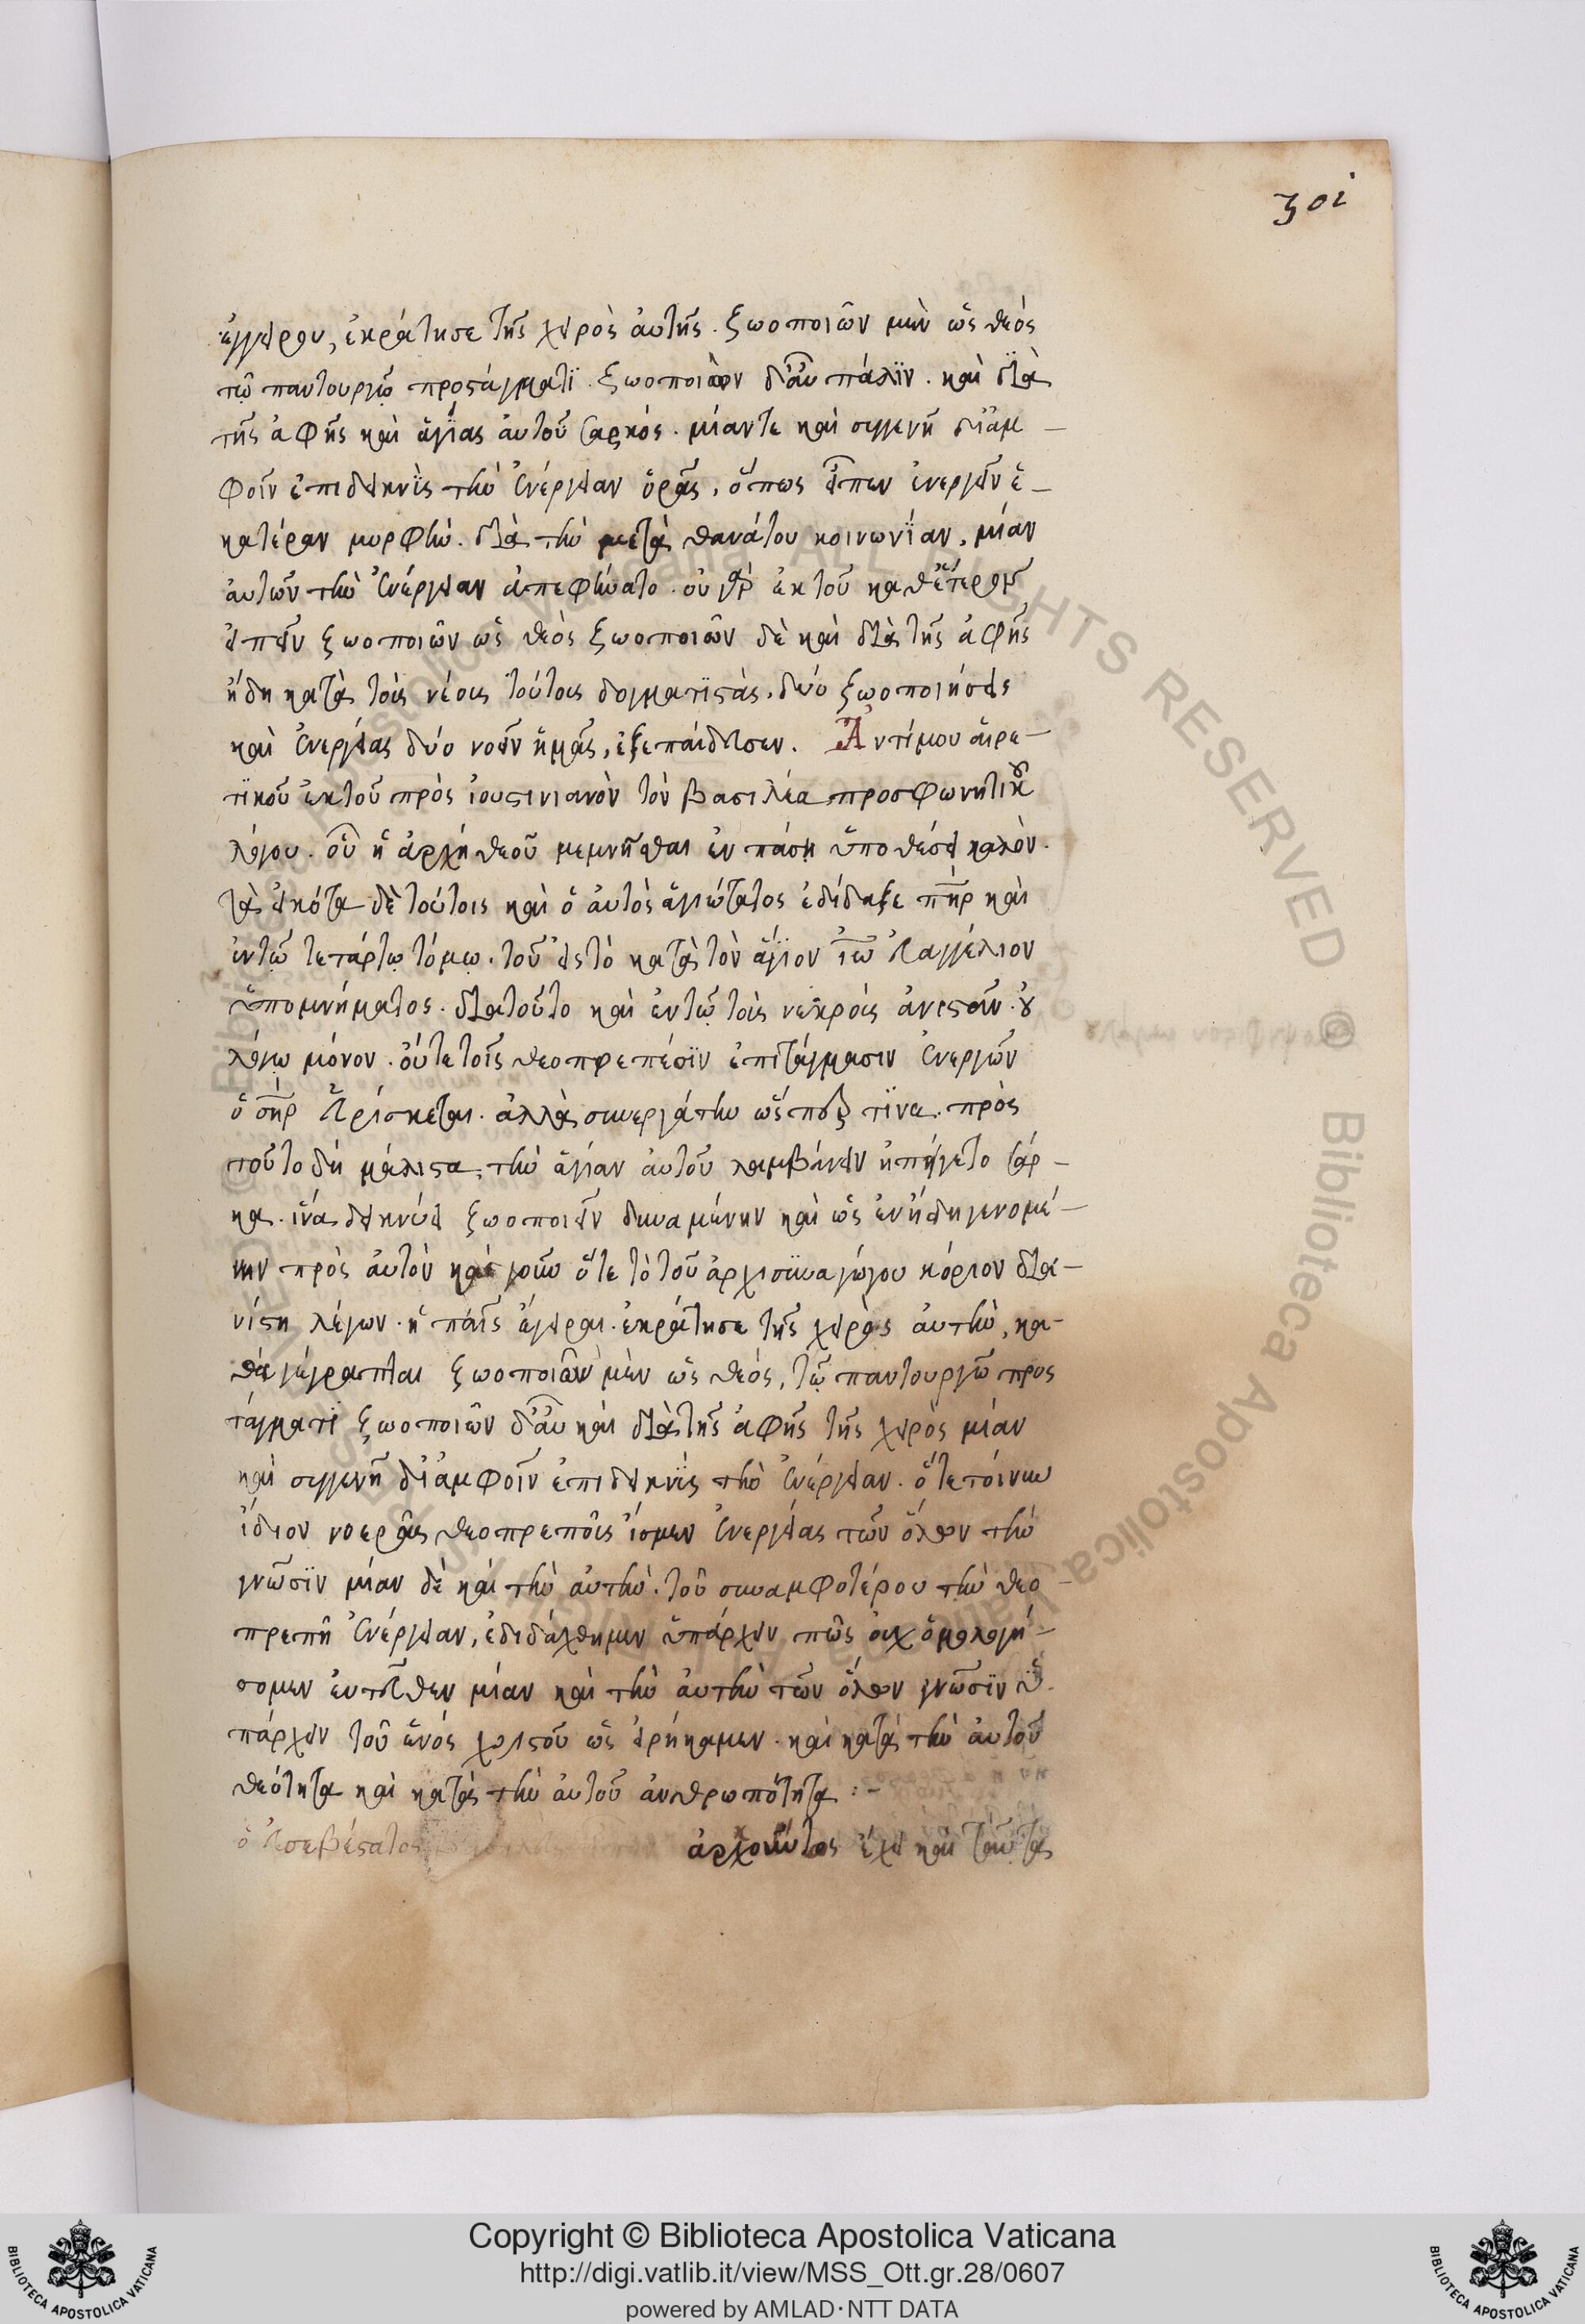 301
ἔγειρου, ἐκράτησε τῆς χειρὸς ἀυτῆς. ζωοποιῶν μὲν ὡς θεὸς
τῷ παντουργῷ προστάγματϊ. ζωοποιῶν δ᾽ἂυ πάλϊν. καὶ διὰ
τῆς ἁφῆς καὶ ἁγίας ἀυτοῦ σαρκός. μίαντε καὶ συγγενῆ δι᾽ἀμ –
φοῖν ἐπιδεικνὺς τὴν ἐνέργειαν ὁρᾷς, ὅπως εἶπεν ἐνεργεῖν ἑ –
κατέραν μορφὴν. διὰ τὴν μετὰ θανάτου κοινωνΐαν, μίαν
ἀυτῶν τὴν ἐνέργειαν ἀπεφήνατο. οὐ γὰρ ἐκ τοῦ καθ᾽ἕτερον
εἰπεῖν ζωοποιῶν ὡς θεὸς ζωοποιῶν δὲ καὶ διὰ τῆς ἁφῆς
ἤδη κατὰ τοὺς νέους τούτους δογματϊστὰς, δύο ζωοποιήσεις
καὶ ἐνεργείας δύο νοεῖν ἡμᾶς, ἐξεπαίδευσεν. Ἀντίμου ἁιρε –
τϊκοῦ ἐκ τοῦ πρὸς ἰουστινιανὸν τὸν βασιλέα προσφωνητικοῦ
λόγου. οὗ ἡ ἀρχὴ θεοῦ μεμνῆσθαι ἐν πάσῃ ὑποθέσει καλὸν.
τὰ εἰκότα δὲ τούτοις καὶ ὁ ἀυτὸς ἁγιώτατος ἐδίδαξε πὴρ καὶ
ἐντῷ τετάρτῳ τόμῳ. τοῦ εἰς τὸ κατὰ τὸν ἅγϊον ἰω εὐαγγέλιον
ὑπομνήματος. διατοῦτο καὶ ἐντῷ τοὺς νεκροὺς ἀνιστᾶν. οὐ
λόγῳ μόνον. οὔτε τοῖς θεοπρεπέσϊν ἐπιτάγμασιν ἐνεργῶν
ὁ σὴρ εὑρίσκεται. ἀλλὰ συνεργάτην ὥσπερ τϊνα. πρὸς
τοῦτο δὴ μάλιστα, τὴν ἁγίαν ἀυτοῦ λαμβάνειν ἠπείγετο σάρ –
κα. ἵνα δεικνύῃ ζωοποιεῖν δυναμένην καὶ ὡς ἑν ἤδη γενομέ –
νην πρὸς ἀυτὸν καὶ γοῦν ὅτε τὸ τοῦ ἀρχισυναγώγου κόριον δια –
νίστη λέγων. ἡ πᾶις ἔγειραι. ἐκράτησε τῆς χειρὸς ἀυτὴν, κα –
θὰ γέγραπται ζωοποιῶν μὲν ὡς θεὸς, τῷ παντουργῷ προς
τάγματϊ ζωοποιῶν δ᾽ἂυ καὶ διὰ τῆς ἁφῆς τῆς χειρὸς μίαν
καὶ συγγενῆ δι᾽ἀμφοῖν ἐπιδεικνὺς τὴν ἐνέργειαν. ὅτε τοίνυν
ἴδιον νοερᾶς θεοπρεποῦς ἴσμεν ἐνεργείας τῶν ὅλων τὴν
γνῶσϊν μίαν δὲ καὶ τὴν ἀυτὴν. τοῦ συναμφοτέρου τὴν θεο –
πρεπῆ ἐνέργειαν, ἐδιδάχθημεν ὑπάρχειν πῶς ὀυχ ὁμολογή –
σομεν ἐντεῦθεν μίαν καὶ τὴν ἀυτὴν τῶν ὅλων γνῶσϊν ὑ –
πάρχειν τοῦ ἑνός χριστοῦ ὡς εἰρήκαμεν. καὶ κατὰ τὴν ἀυτοῦ
θεότητα καὶ κατὰ τὴν ἀυτοῦ ἀνθρωπότητα :–
ὁ ἐυσεβέστατος ἀρχοντος ἔχει καὶ ταύτας
Copyright © Biblioteca Apostolica Vaticana
http://digi.vatlib.it/view/MSS_Ott.gr.28/0607
powered by AMLAD·NTT DATA
BIBLIOTECA APOSTOLICA VATICANA
BIBLIOTECA APOSTOLICA VATICANA